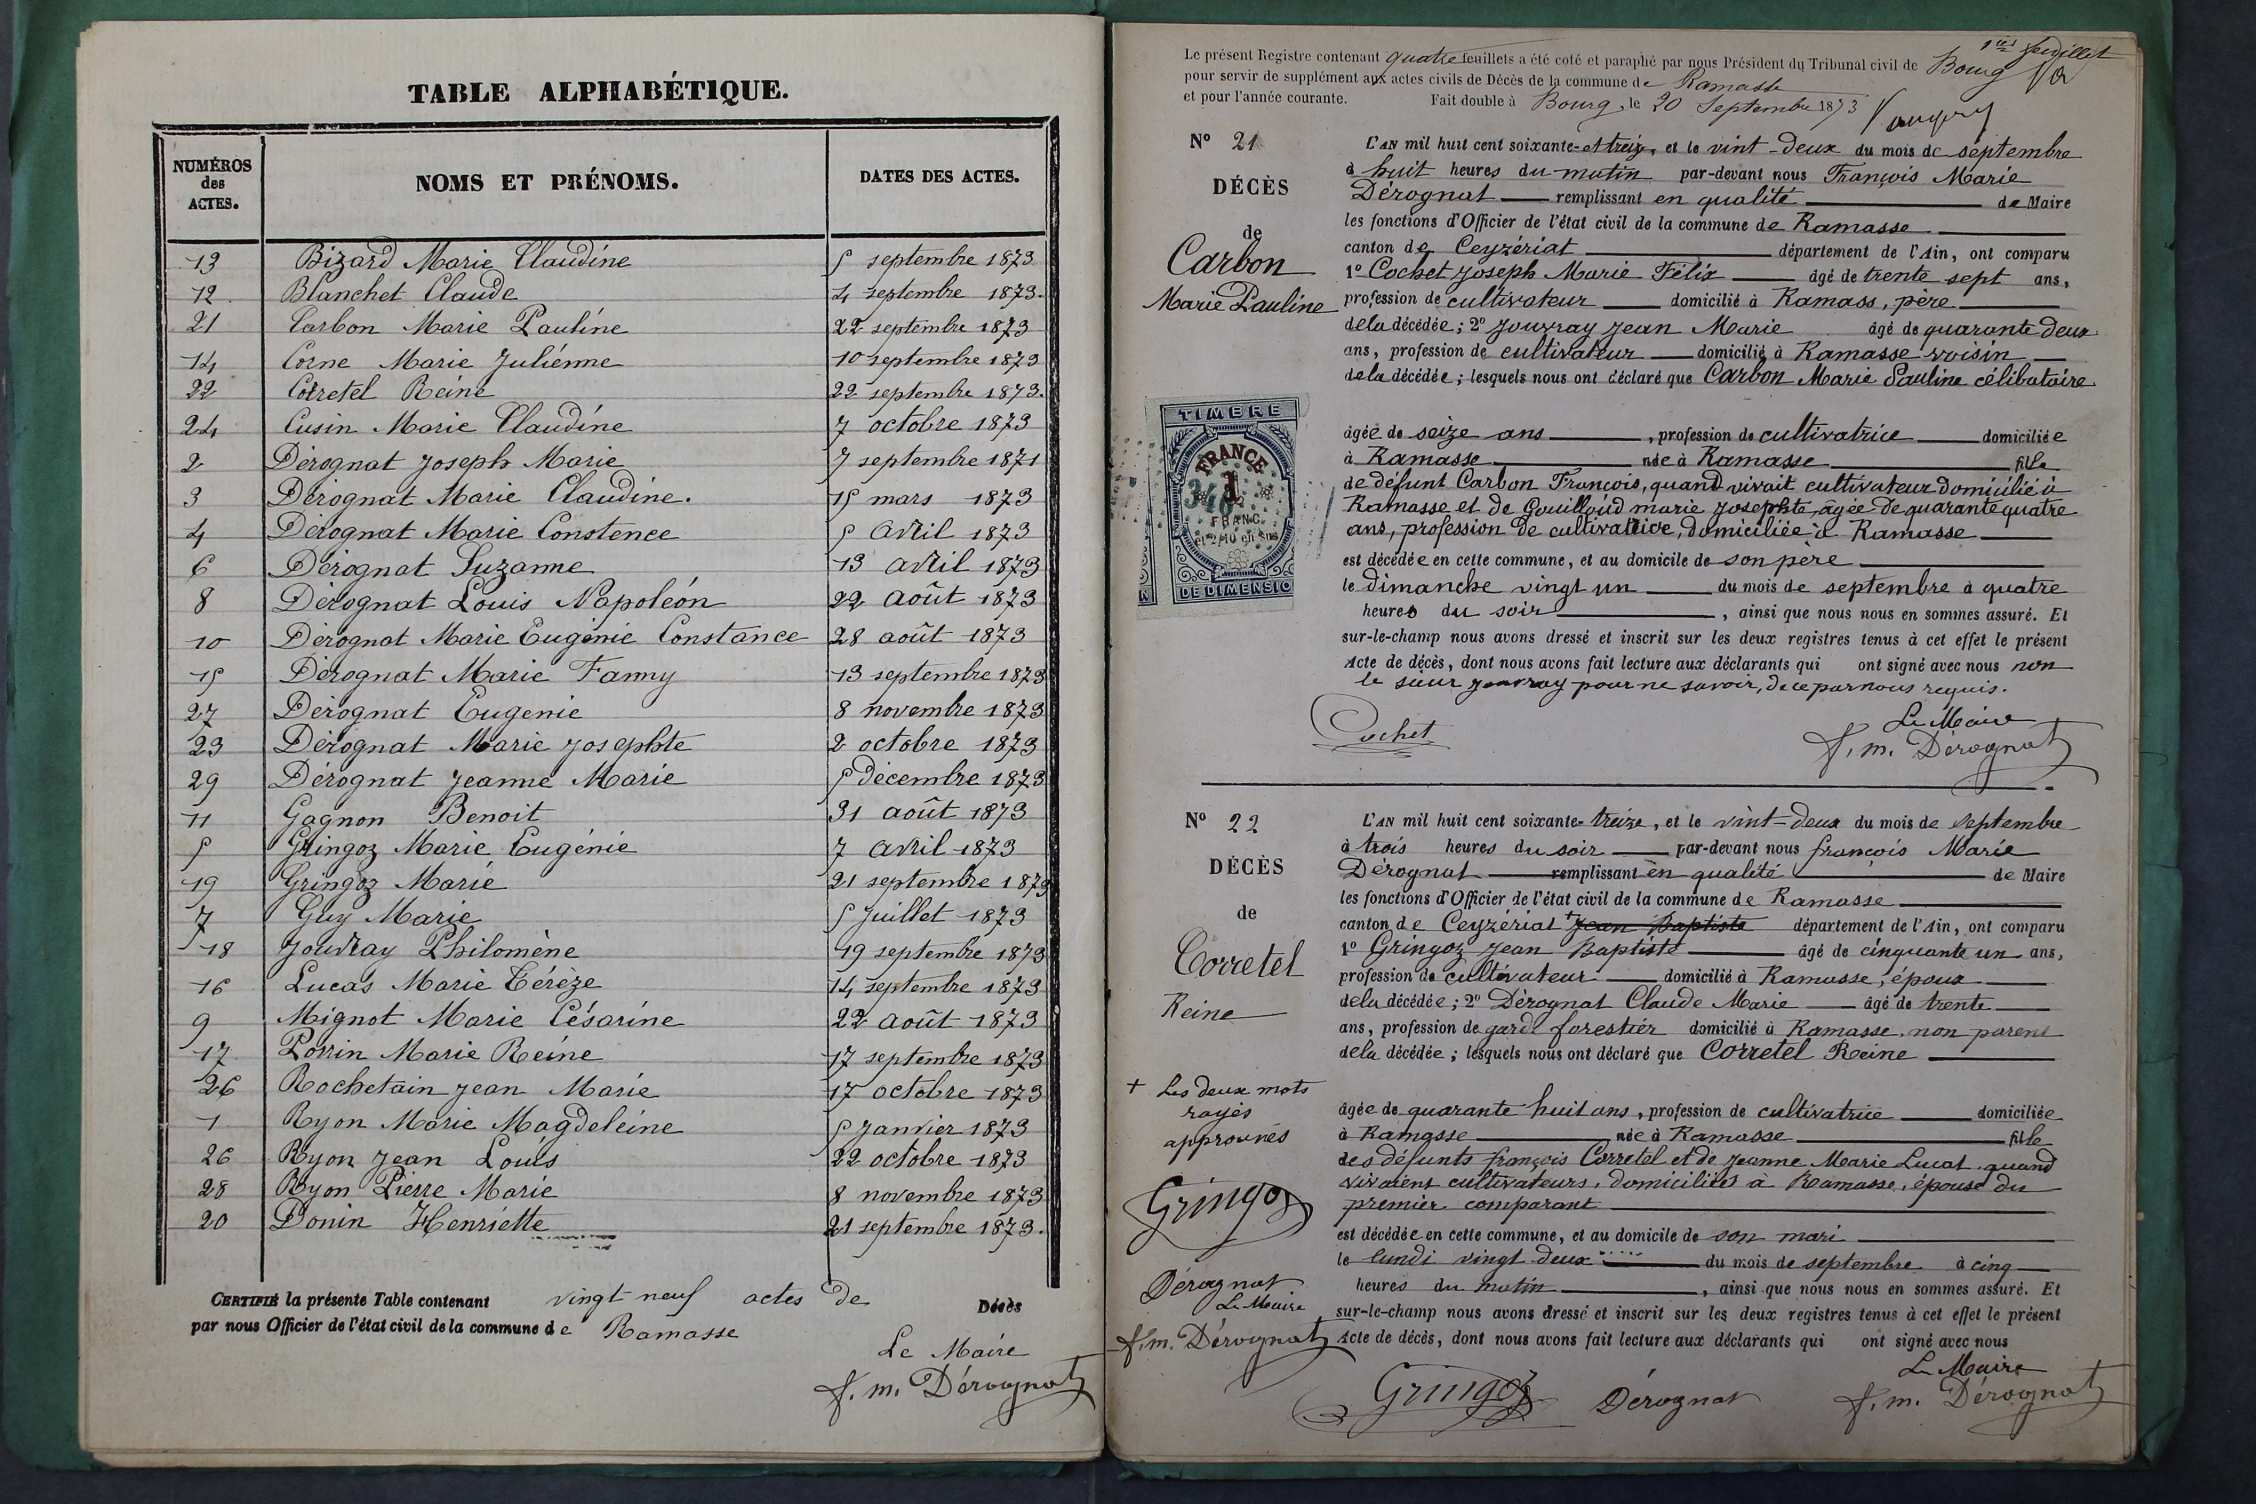 TABLE ALPHABÉTIQUE.
NUMÉROS des ACTES. NOMS ET PRÉNOMS. DATES DES ACTES.
13 Bizard Marie Claudine 5 septembre 1873
12 Blanchet Claude 4 septembre 1873.
21 Carbon Marie Pauline 22 septembre 1873
14 Corne Marie Juliénne 10 septembre 1873
22 Corretel Reine 22 septembre 1873.
24 Cusin Marie Claudine 7 octobre 1873
2 Dérognat Joseph Marie 7 septembre 1871
3 Dérognat Marie Claudine. 15 mars 1873
4 Dérognat Marie Constence 5 avril 1873
6 Dérognat Suzanne 13 avril 1873
8 Dérognat Louis Napoléon 22 août 1873
10 Dérognat Marie Eugénie Constance 28 août 1873
15 Dérognat Marie Fanny 13 septembre 1873
27 Dérognat Eugenie 8 novembre 1873
23 Dérognat Marie Josephte 2 octobre 1873
29 Dérognat Jeanne Marie 5 décembre 1873
11 Gagnon Benoit 31 août 1873
5 Gringoz Marie Eugénie 7 avril 1873
19 Gringoz Marie 21 septembre 1873
7 Guy Marie 5 Juillet 1873
18 Jouvray Philomène 19 septembre 1873
16 Lucas Marie Térèze 14 septembre 1873
9 Mignot Marie Césarine 22 août 1873
17 Perrin Marie Reine 17 septembre 1873
26 Rochetain Jean Marie 17 octobre 1873
1 Ryon Marie Magdeleine 5 Janvier 1873
26 Ryon Jean Louis 22 octobre 1873
28 Ryon Pierre Marie 8 novembre 1873
20 Donin Henriette 21 septembre 1873.
CERTIFIÉ la présente Table contenant vingt neuf actes de Décès
par nous Officier de l'état civil de la commune de Ramasse
Le Maire
f. m. Dérognat
1er feuillet
Le présent Registre contenant quatre feuillets a été coté et paraphé par nous Président du Tribunal civil de Bourg
pour servir de supplément aux actes civils de Décès de la commune de Ramasse
et pour l'année courante. Fait double à Bourg, le 20 Septembre 1873
N° 21
DÉCÈS
de
Carbon
Marie Pauline
L'AN mil huit cent soixante-et treize, et le vint-deux du mois de septembre
à huit heures du matin par-devant nous François Marie
Dérognat remplissant en qualité de Maire
les fonctions d'Officier de l'état civil de la commune de Ramasse
canton de Ceyzériat département de l'Ain, ont comparu
1° Cochet Joseph Marie Félix âgé de trente sept ans,
profession de cultivateur domicilié à Ramass, père
de la décédée; 2° Jouvray Jean Marie âgé de quarante deux
ans, profession de cultivateur domicilié à Ramasse voisin
de la décédée; lesquels nous ont déclaré que Carbon Marie Pauline célibataire
âgée de seize ans, profession de cultivatrice domiciliée
à Ramasse née à Ramasse fille
de défunt Carbon François, quand vivait cultivateur domicilié à
Ramasse et de Gouilloud marie Josephte, agée de quarante quatre
ans, profession de cultivatrice, domiciliée à Ramasse
est décédée en cette commune, et au domicile de son père
le dimanche vingt un du mois de septembre à quatre
heures du soir, ainsi que nous nous en sommes assuré. Et
sur-le-champ nous avons dressé et inscrit sur les deux registres tenus à cet effet le présent
Acte de décès, dont nous avons fait lecture aux déclarants qui ont signé avec nous non
le sieur Jouvray pour ne savoir, de ce par nous requis.
Cochet
Le Maire
f. m. Dérognat
TIMBRE
FRANCE
1
FRANC
et 2/10 en sus
DE DIMENSION
N° 22
DÉCÈS
de
Corretel
Reine
L'AN mil huit cent soixante-treize, et le vint-deux du mois de septembre
à trois heures du soir par-devant nous françois Marie
Dérognat remplissant en qualité de Maire
les fonctions d'Officier de l'état civil de la commune de Ramasse
canton de Ceyzériat + Jean Baptiste département de l'Ain, ont comparu
1° Gringoz Jean Baptiste âgé de cinquante un ans,
profession de cultivateur domicilié à Ramasse, époux
de la décédée; 2° Dérognat Claude Marie âgé de trente
ans, profession de garde forestier domicilié à Ramasse, non parent
de la décédée; lesquels nous ont déclaré que Corretel Reine
âgée de quarante huit ans, profession de cultivatrice domiciliée
à Ramasse née à Ramasse fille
des défunts françois Corretel et de Jeanne Marie Lucat quand
vivaient cultivateurs, domiciliés à Ramasse, épouse du
premier comparant
est décédée en cette commune, et au domicile de son mari
le lundi vingt deux du mois de septembre à cinq
heures du matin, ainsi que nous nous en sommes assuré. Et
sur-le-champ nous avons dressé et inscrit sur les deux registres tenus à cet effet le présent
Acte de décès, dont nous avons fait lecture aux déclarants qui ont signé avec nous
+ Les deux mots
rayés
approuvés
Gringoz
Dérognat
Le Maire
f. m. Dérognat
Gringoz Dérognat
Le Maire
f. m. Dérognat